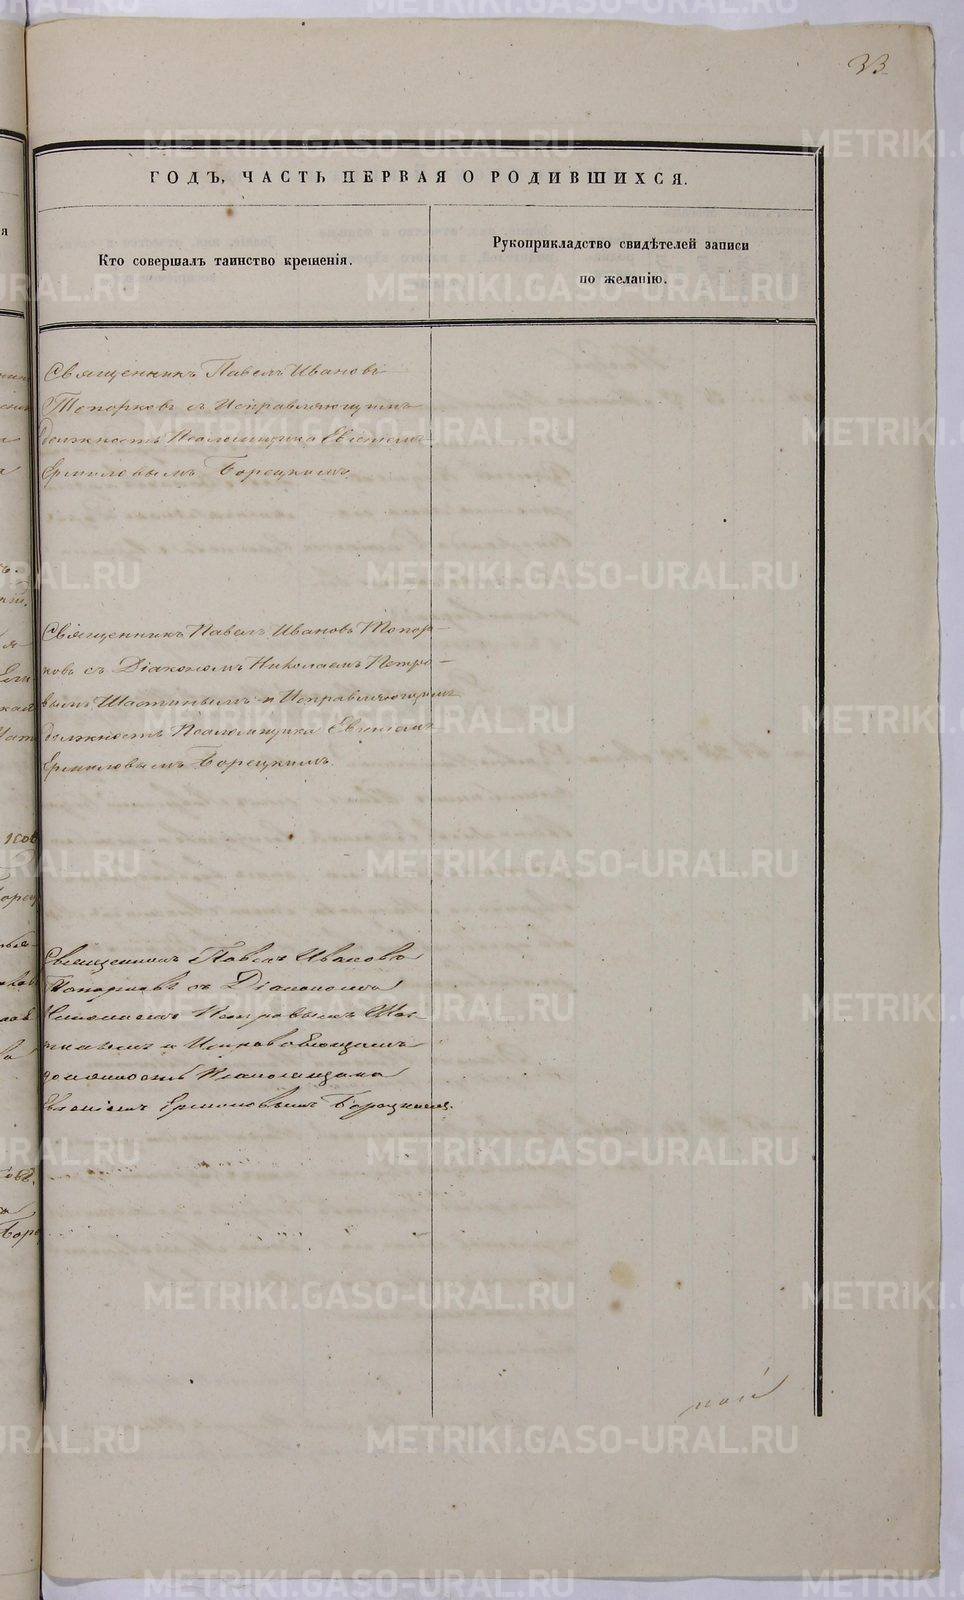 33
ГОДЪ, ЧАСТЬ ПЕРВАЯ О РОДИВШИХСЯ.
Кто совершалъ таинство крещенія.
Рукоприкладство свидѣтелей записи
по желанію.
Священникъ Павелъ Ивановъ
Топорковъ съ Исправляющимъ
должность Псаломщика Евгеніемъ
Ермиловымъ Борецкимъ.
Священникъ Павелъ Ивановъ Топор-
ковъ съ Діакономъ Николаемъ Петро-
вымъ Шастинымъ и Исправляющимъ
должность Псаломщика Евгеніемъ
Ермиловымъ Борецкимъ.
Священникъ Павелъ Ивановъ
Топорковъ съ Діакономъ
Николаемъ Петровымъ Шас-
тинымъ и Исправляющимъ
должность Псаломщика
Евгеніемъ Ермиловымъ Борецкимъ.
METRIKI.GASO-URAL.RU